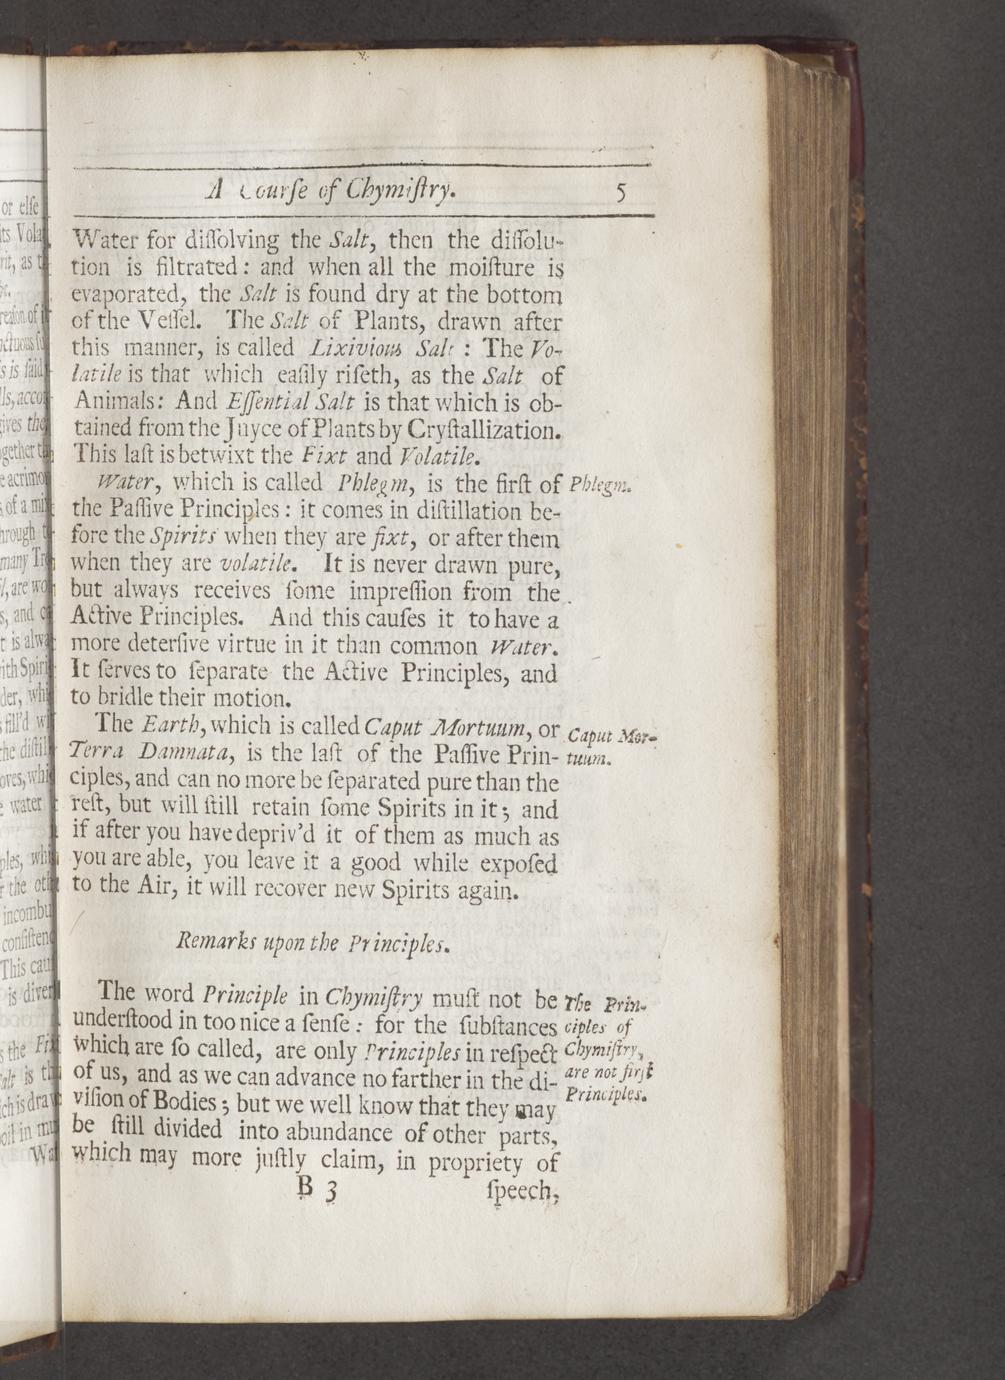 A Courſe of Chymiſtry. 5
Water for diſſolving the Salt, then the diſſolu-
tion is filtrated: and when all the moiſture is
evaporated, the Salt is found dry at the bottom
of the Veſſel. The Salt of Plants, drawn after
this manner, is called Lixivious Salt : The Vo-
latile is that which eaſily riſeth, as the Salt of
Animals: And Eſſential Salt is that which is ob-
tained from the Juyce of Plants by Cryſtallization.
This laſt is betwixt the Fixt and Volatile.
Water, which is called Phlegm, is the firſt of
Phlegm.
the Paſſive Principles: it comes in diſtillation be-
fore the Spirits when they are fixt, or after them
when they are volatile. It is never drawn pure,
but always receives ſome impreſſion from the
Active Principles. And this cauſes it to have a
more deterſive virtue in it than common Water.
It ſerves to ſeparate the Active Principles, and
to bridle their motion.
The Earth, which is called Caput Mortuum, or
Terra Damnata, is the laſt of the Paſſive Prin-
Caput Mor-
tuum.
ciples, and can no more be ſeparated pure than the
reſt, but will ſtill retain ſome Spirits in it; and
if after you have depriv'd it of them as much as
you are able, you leave it a good while expoſed
to the Air, it will recover new Spirits again.
Remarks upon the Principles.
The word Principle in Chymiſtry muſt not be
underſtood in too nice a ſenſe: for the ſubſtances
which are ſo called, are only Principles in reſpect
of us, and as we can advance no farther in the di-
viſion of Bodies; but we well know that they may
The Prin-
ciples of
Chymiſtry,
are not firſt
Principles.
be ſtill divided into abundance of other parts,
which may more juſtly claim, in propriety of
B 3 ſpeech,